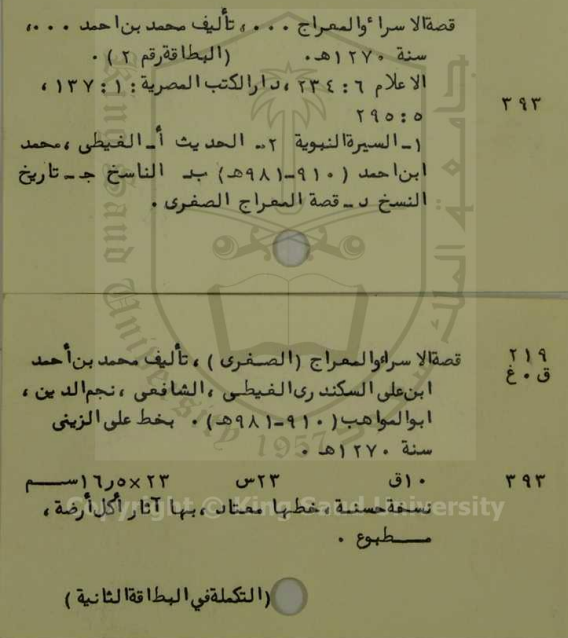 قصةالاسراءوالمعراج ...، تأليف محمد بن احمد ...،
سنة ١٢٧٠هـ. (البطاقةرقم ٢).
الاعلام ٦: ٢٣٤، دارالكتب المصرية: ١: ١٣٧،
٣٩٣
٥: ٢٩٥
١- السيرةالنبوية ٢- الحديث أ- الغيطى، محمد
ابن احمد (٩١٠-٩٨١هـ) ب- الناسخ ج- تاريخ
النسخ د- قصة المعراج الصغرى.
٢١٩
ق.غ
قصةالاسراءوالمعراج (الصغرى)، تأليف محمد بن أحمد
ابن على السكندرى الغيطى، الشافعى، نجم الدين،
ابوالمواهب (٩١٠-٩٨١هـ). بخط على الزينى
سنة ١٢٧٠هـ.
٣٩٣
١٠ق ٢٣س ٢٣×١٦٫٥سم
نسخةحسنة، خطها معتاد، بها آثار أكل أرضة،
مطبوع.
(التكملةفي البطاقةالثانية)
جامعة الملك سعود
King Saud University
1957
Copyright © King Saud University